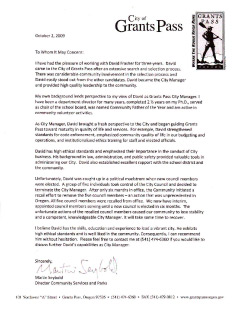 City of
Grants Pass
GRANTS
PASS
October 2, 2009
To Whom It May Concern:
I have had the pleasure of working with David Frasher for three years. David
came to the City of Grants Pass after an extensive search and selection process.
There was considerable community involvement in the selection process and
David really stood out from the other candidates. David became the City Manager
and provided high quality leadership to the community.
My own background lends perspective to my view of David as Grants Pass City Manager. I
have been a department director for many years, completed 2 ½ years on my Ph.D., served
as chair of the school board, was named Community Father of the Year and am active in
community volunteer activities.
As City Manager, David brought a fresh perspective to the City and began guiding Grants
Pass toward maturity in quality of life and services. For example, David strengthened
standards for code enforcement, emphasized community quality of life in our budgeting and
operations, and institutionalized ethics training for staff and elected officials.
David has high ethical standards and emphasized their importance in the conduct of City
business. His background in law, administration, and public safety provided valuable tools in
administering our City. David also established excellent rapport with the school district and
the community.
Unfortunately, David was caught up in a political maelstrom when new council members
were elected. A group of five individuals took control of the City Council and decided to
terminate the City Manager. After only six months in office, the Community initiated a
recall effort to remove the five council members - an action that was unprecedented in
Oregon. All five council members were recalled from office. We now have interim,
appointed council members serving until a new council is elected in six months. The
unfortunate actions of the recalled council members caused our community to lose stability
and a competent, knowledgeable City Manager. It will take time to come back.
I believe David has the skills, education and experience to lead a vibrant City. He exhibits
high ethical standards and is well liked in the community. Consequently, I can recommend
him without hesitation. Please feel free to contact me at (541) 474-6360 if you would like to
discuss further David's capabilities as City Manager.
Sincerely,
Martin Seybold
Martin Seybold
Director Community Services and Parks
101 Northwest "A" Street • Grants Pass, Oregon 97526 • (541) 474-6360 • FAX (541) 479-0812 • www.grantspassoregon.gov